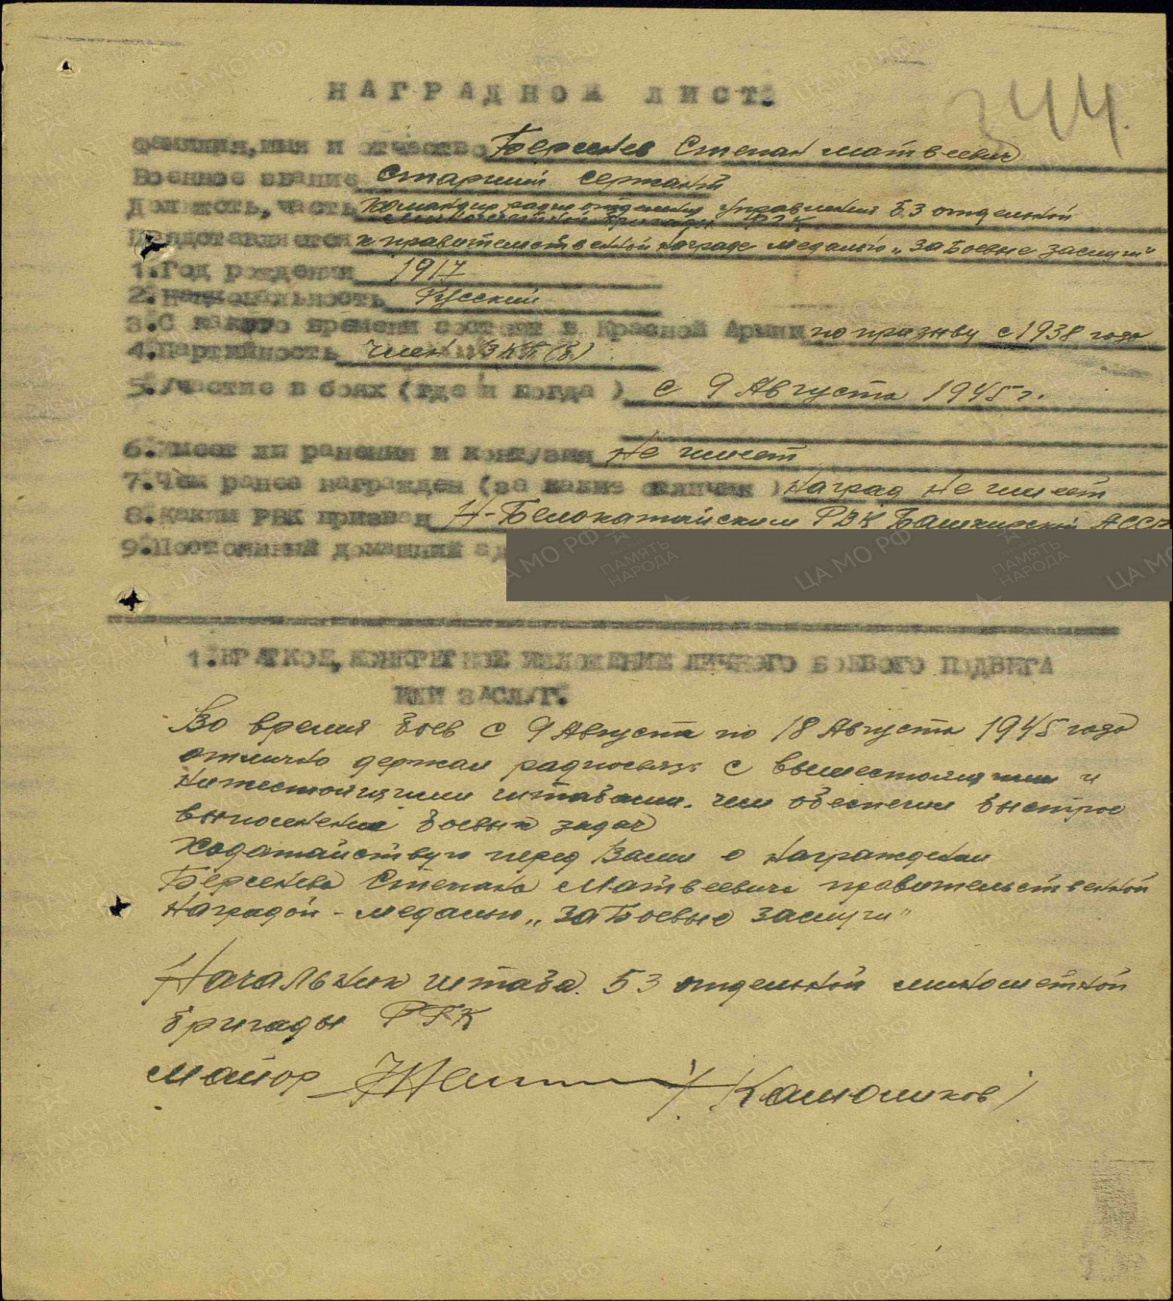 344.
НАГРАДНОЙ ЛИСТ.
Фамилия, имя и отчество Берсенев Степан Матвеевич
Военное звание Старший сержант
Должность, часть Командир радио отделения управления 53 отдельной
минометной бригады РГК
Представляется к правительственной награде медалью „За Боевые заслуги"
1. Год рождения 1917
2. Национальность Русский
3. С какого времени состоит в Красной Армии по призыву с 1938 года
4. Партийность член ВКП(б)
5. Участие в боях (где и когда) с 9 Августа 1945 г.
6. Имеет ли ранения и контузии Не имеет
7. Чем ранее награжден (за какие отличия) Наград не имеет
8. Каким РВК призван Н-Белокатайским РВК Башкирской АССР
9. Постоянный домашний ад
1. КРАТКОЕ, КОНКРЕТНОЕ ИЗЛОЖЕНИЕ ЛИЧНОГО БОЕВОГО ПОДВИГА
ИЛИ ЗАСЛУГ.
Во время боев с 9 Августа по 18 Августа 1945 года
отлично держал радиосвязь с вышестоящими и
нижестоящими штабами, чем обеспечил быстрое
выполнение боевых задач
Ходатайствую перед Вами о награждении
Берсенева Степана Матвеевича правительственной
наградой - медалью „За Боевые заслуги"
Начальник штаба 53 отдельной минометной
бригады РГК
Майор /Калюжников/